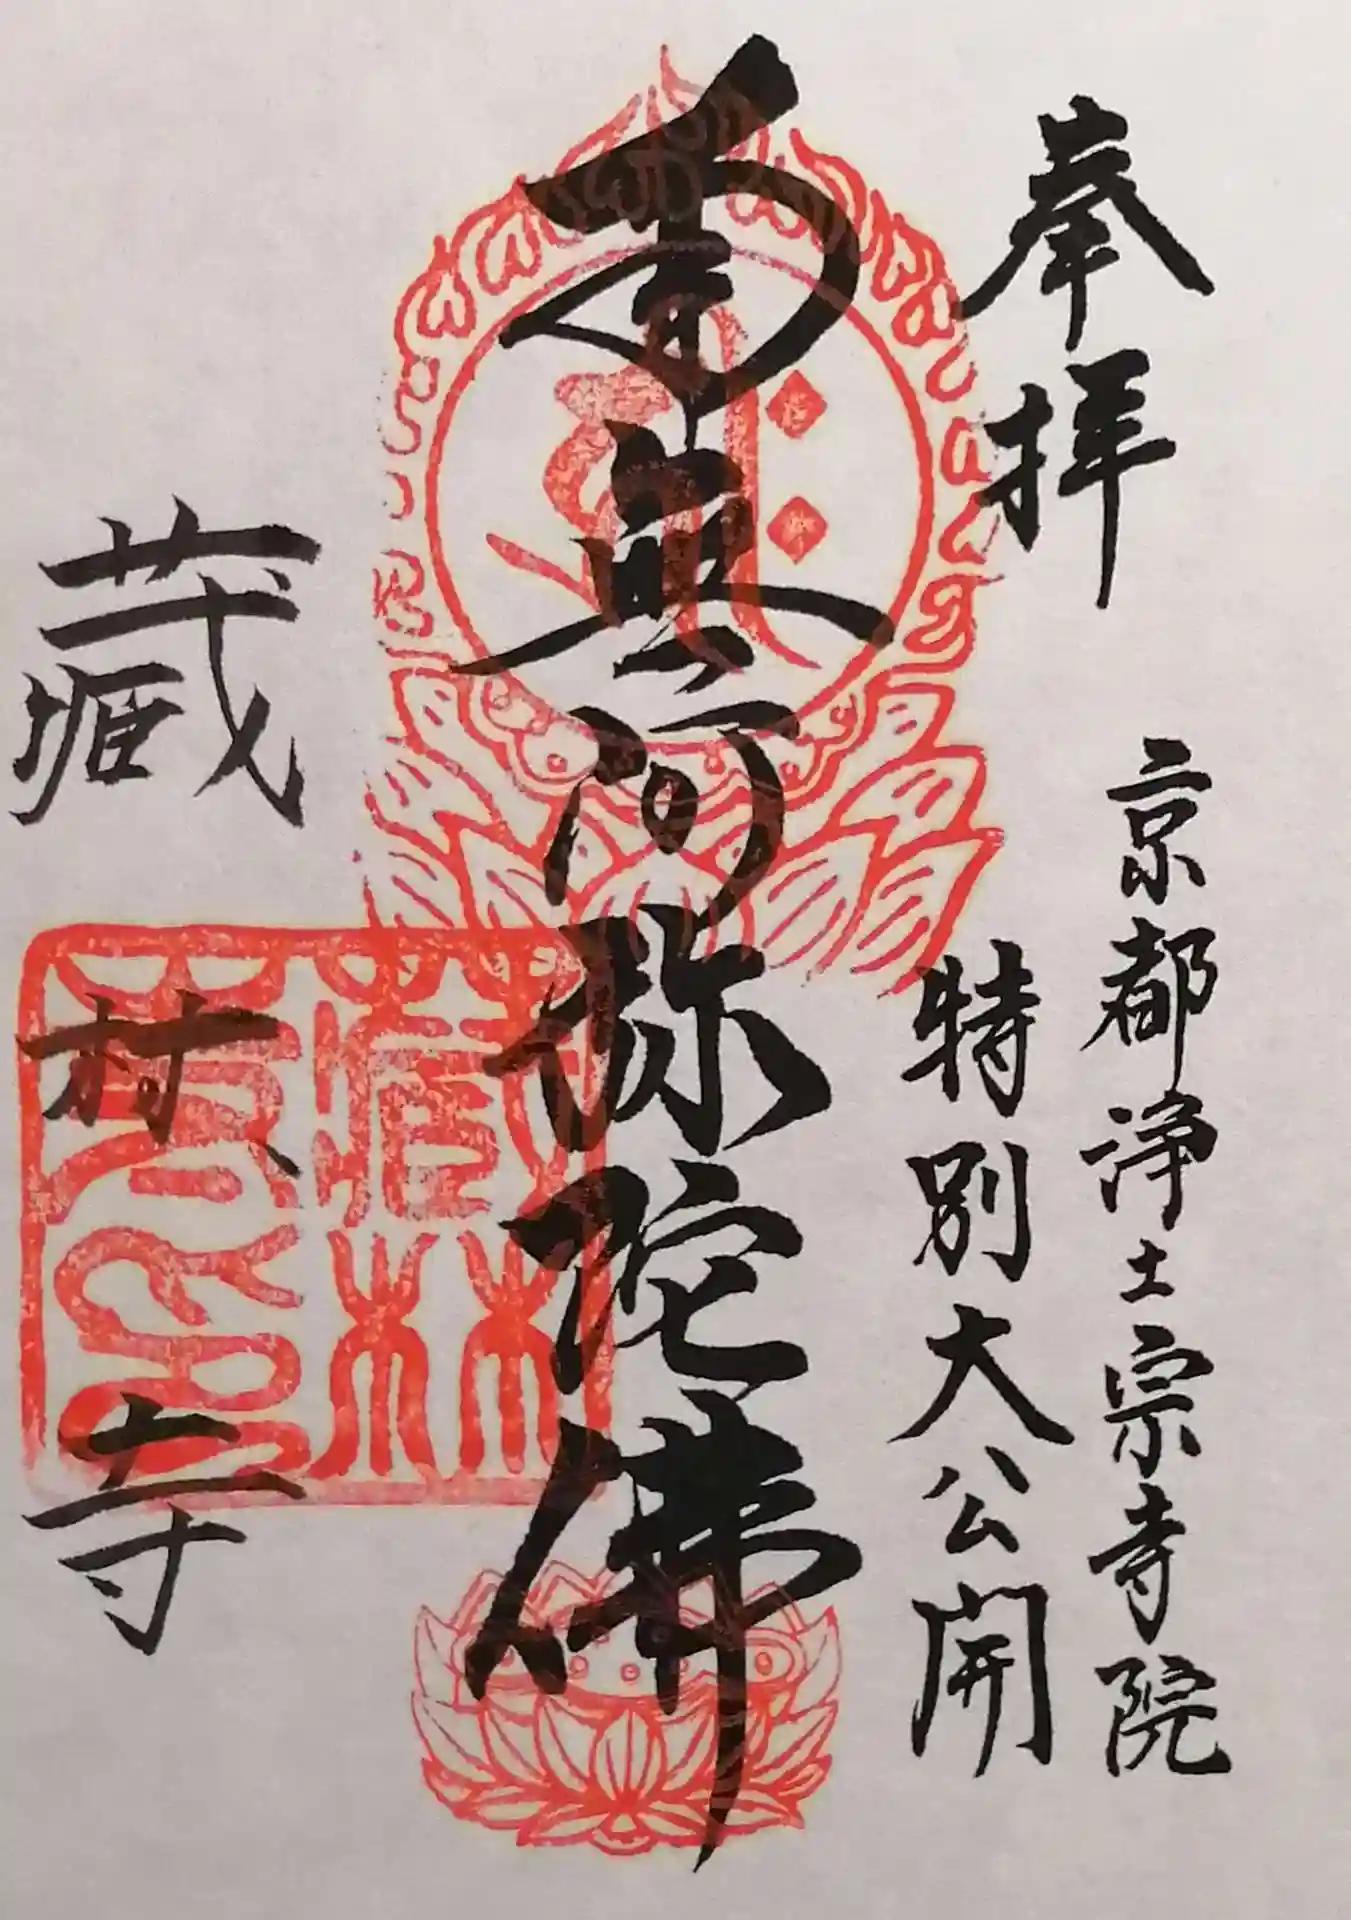 奉拝
京都浄土宗寺院
特別大公開
南無阿弥陀佛
藏林寺
藏林